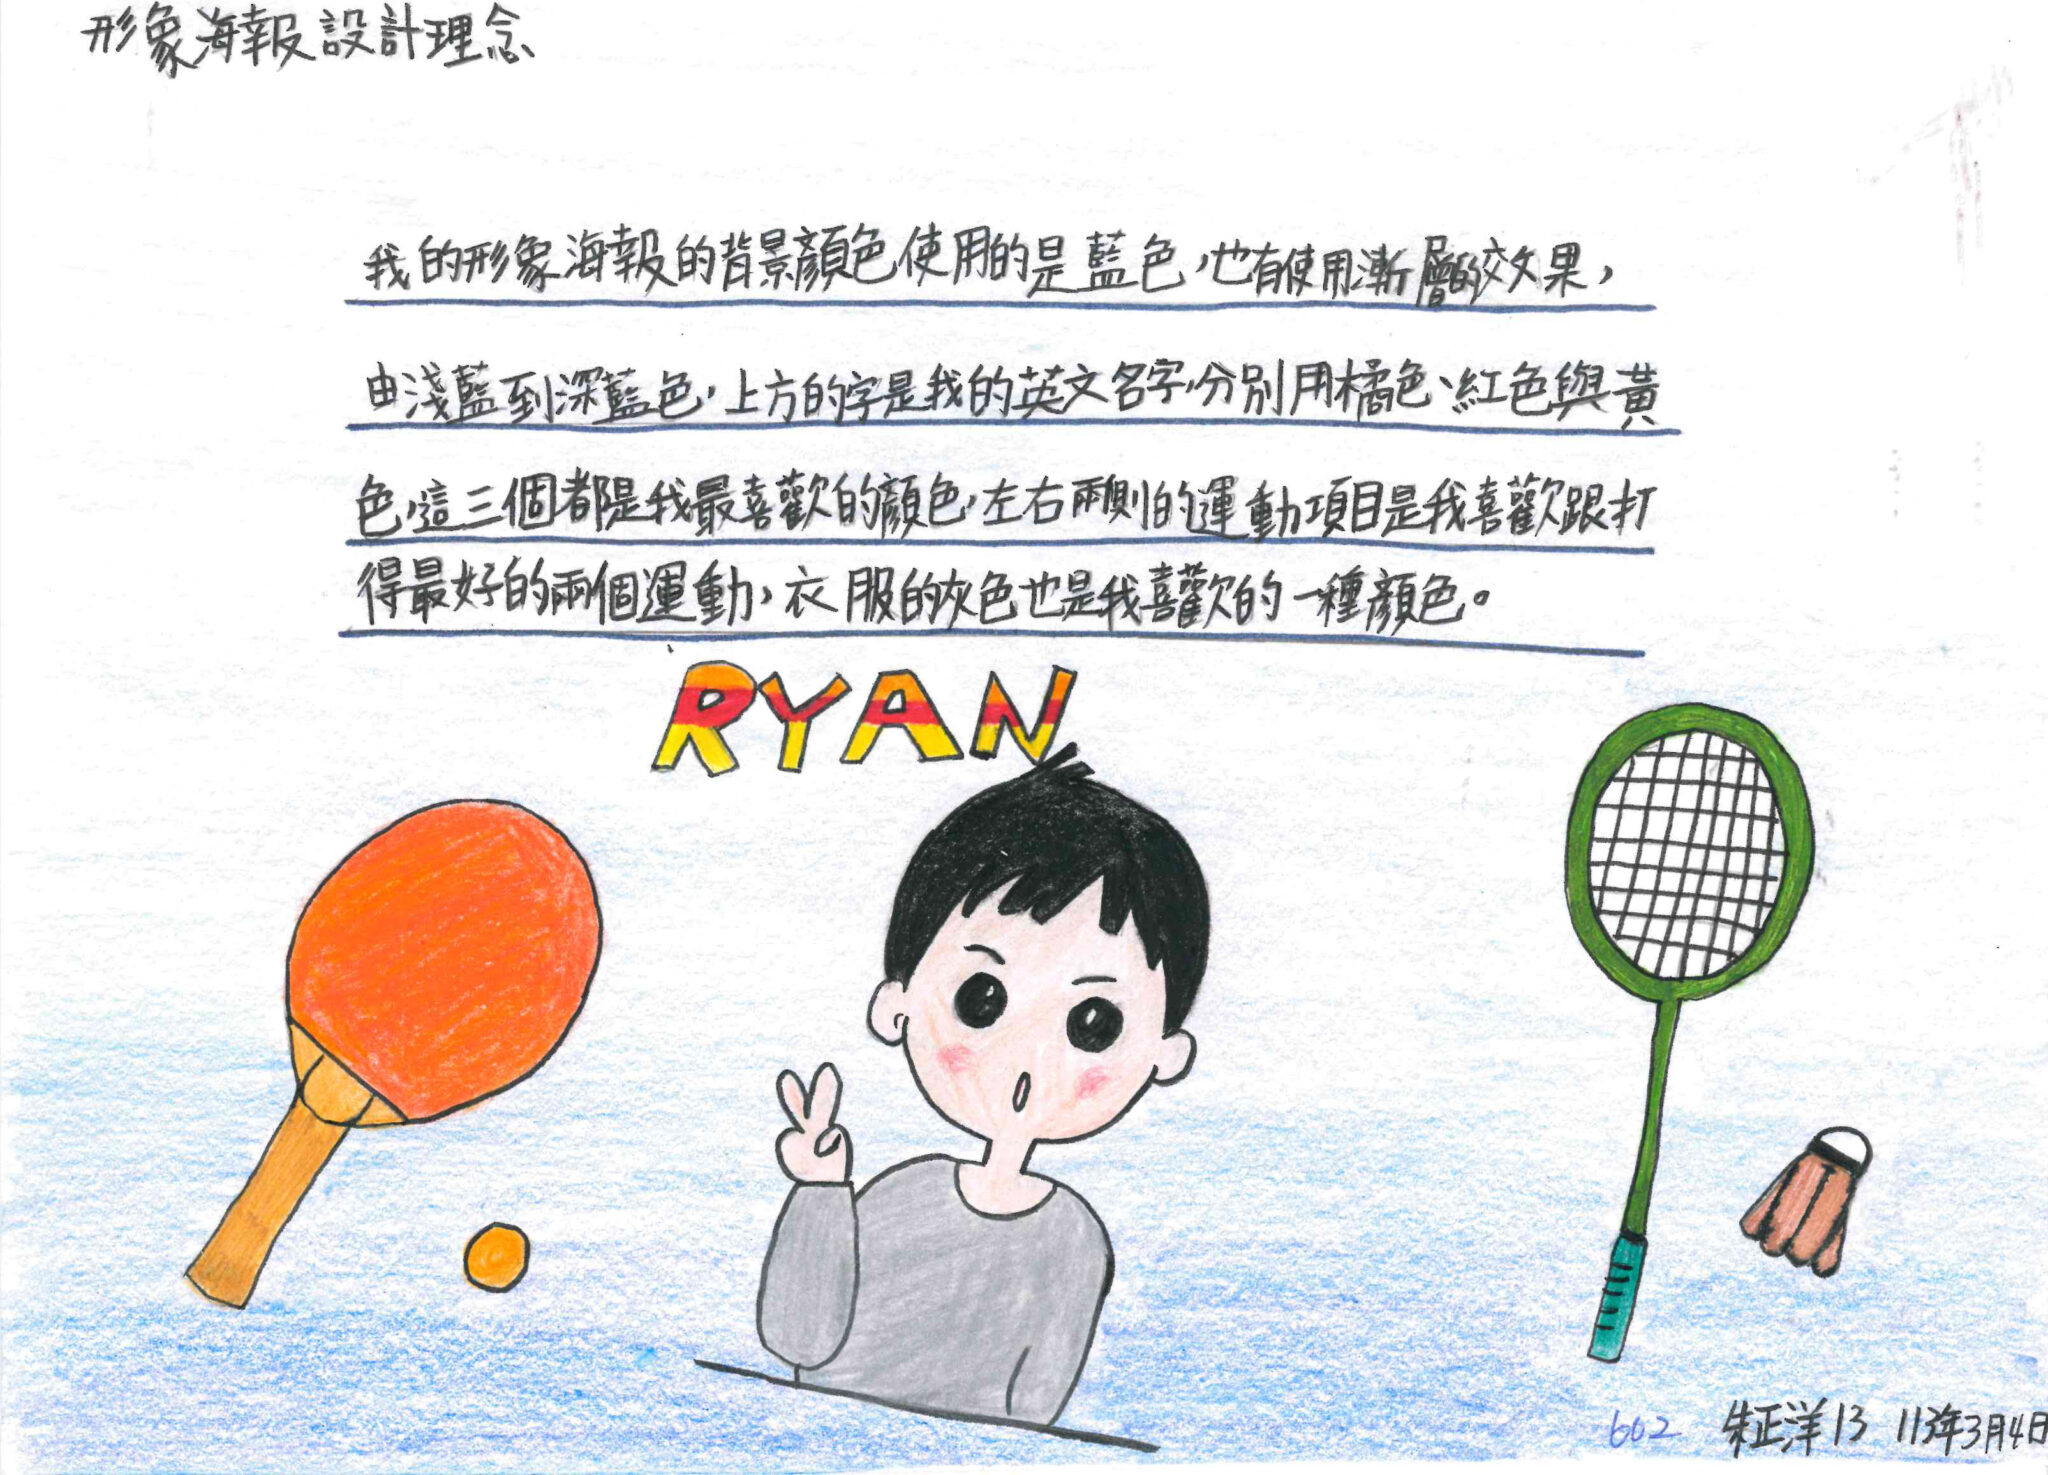 形象海報設計理念
我的形象海報的背景顏色使用的是藍色，也有使用漸層的效果，
由淺藍到深藍色，上方的字是我的英文名字，分別用橘色、紅色與黃
色，這三個都是我最喜歡的顏色，左右兩側的運動項目是我喜歡跟打
得最好的兩個運動，衣服的灰色也是我喜歡的一種顏色。
RYAN
602 朱正洋 13 113年3月4日